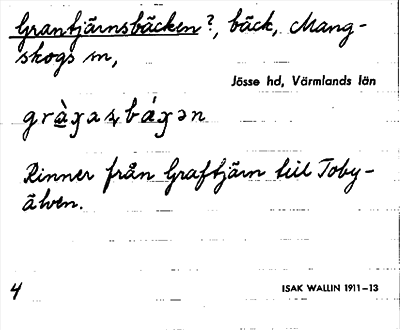 Grantjärnsbäcken?, bäck, Mang-
skogs sn,
Jösse hd, Värmlands län
Rinner från Graftjärn till Toby-
älven.
4
ISAK WALLIN 1911–13